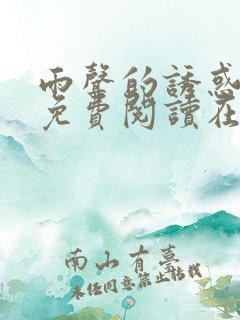 雨聲的誘惑
免費閱讀在
南山有墓
未經同意禁止轉載